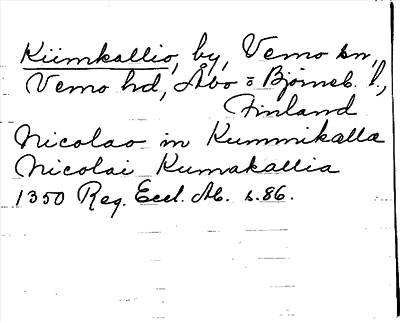 Kiimkallio, by, Vemo sn,
Vemo hd, Åbo o Björneb. l,
Finland
Nicolao in Kummikalla
Nicolai Kumakallia
1350 Reg. Eccl. Ab. s. 86.